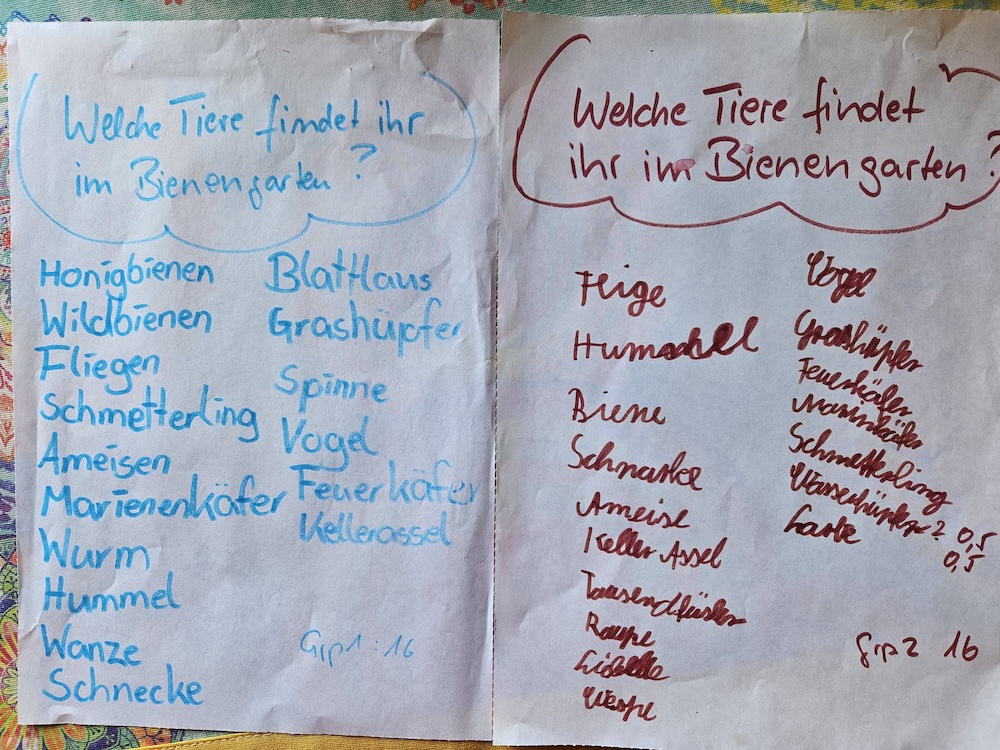 Welche Tiere findet ihr
im Bienengarten?
Honigbienen
Wildbienen
Fliegen
Schmetterling
Ameisen
Marienenkäfer
Wurm
Hummel
Wanze
Schnecke
Blattlaus
Grashüpfer
Spinne
Vogel
Feuerkäfer
Kellerassel
Grp1:16
Welche Tiere findet
ihr im Bienengarten?
Flige
Biene
Schnacke
Ameise
Keller Assel
Raupe
Libelle
Wespe
Vogel
Grashüpfer
Feuerkäfer
Schmetterling
0,5
0,5
Grp2 16